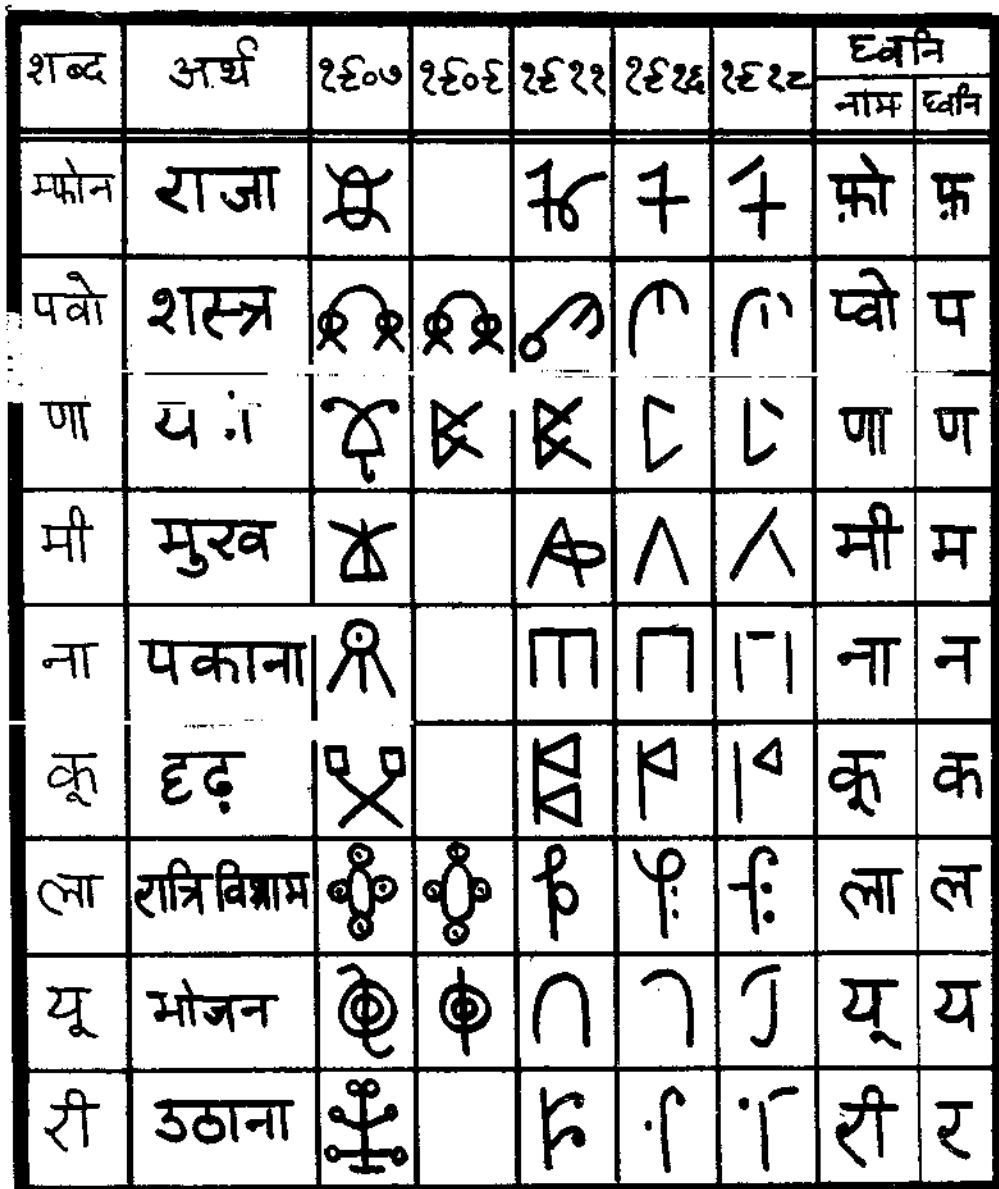 शब्द अर्थ १९०७ १९०९ १९११ १९१६ १९१८ ध्वनि
नाम ध्वनि
म्फोन राजा फ़ो फ़
पवो शस्त्र प्वो प
णा णा ण
मी मुख मी म
ना पकाना ना न
कू दृढ़ कू क
ला रात्रि विश्राम ला ल
यू भोजन यू य
री उठाना री र